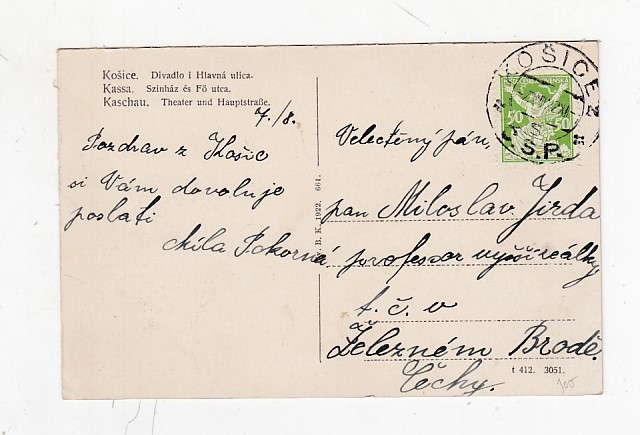 Košice. Divadlo i Hlavná ulica.
Kassa. Szinház és Fö utca.
Kaschau. Theater und Hauptstraße.
7./8.
Pozdrav z Košic
si Vám dovoluje
poslati
Míla Pokorná
B. K. 1922. 661.
KOŠICE 2
S.P.
50
Velectěný pán,
pan Miloslav Jirda
professor vyšší reálky
t. č. v
Železném Brodě.
Čechy.
t 412. 3051.